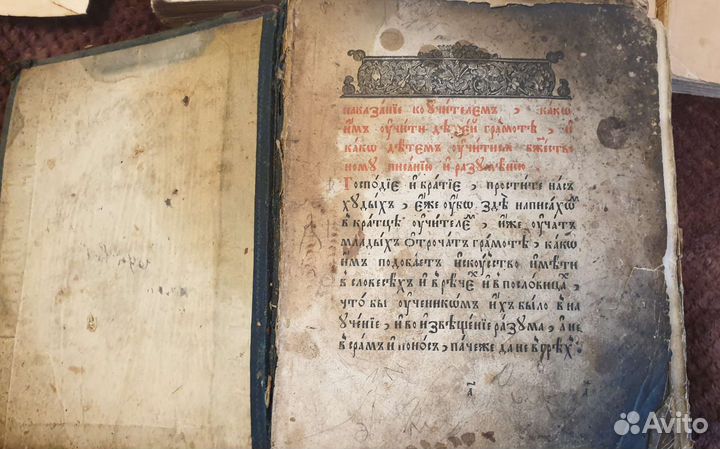 наказанїе ко ᲂу҆чи́телемъ , ка́кѡ
и҆́мъ ᲂу҆чи́ти дѣте́й гра́мотѣ , и҆
ка́кѡ дѣ́темъ ᲂу҆чи́тисѧ бж҃е́ство
ному писа́нїю и҆ разꙋмѣ́нїю .
Госпо́дїе и҆ бра́тїе , прости́те на́съ
хꙋды́хъ , є҆́же ᲂу҆́бѡ здѣ̀ написа́хѡⷨ
в кра́тцѣ ᲂу҆чи́телеⷨ , и҆́же ᲂу҆ча́тъ
млады́хъ ѻ҆троча́тъ гра́мотѣ , ка́кѡ
и҆́мъ подоба́етъ и҆скꙋ́ство и҆мѣ́ти
в словесѣ́хъ и҆ в рѣ́чеⷯ и҆ в посло́вицаⷯ ,
что́ бы ᲂу҆ченикѡ́мъ и҆́хъ бы́ло в на
ᲂу҆че́нїе , и҆ во и҆звѣще́нїе ра́зꙋма , а҆ не
в сра́мъ и҆ поно́съ , па́че же да не в грѣ́хъ
а҃
Avito